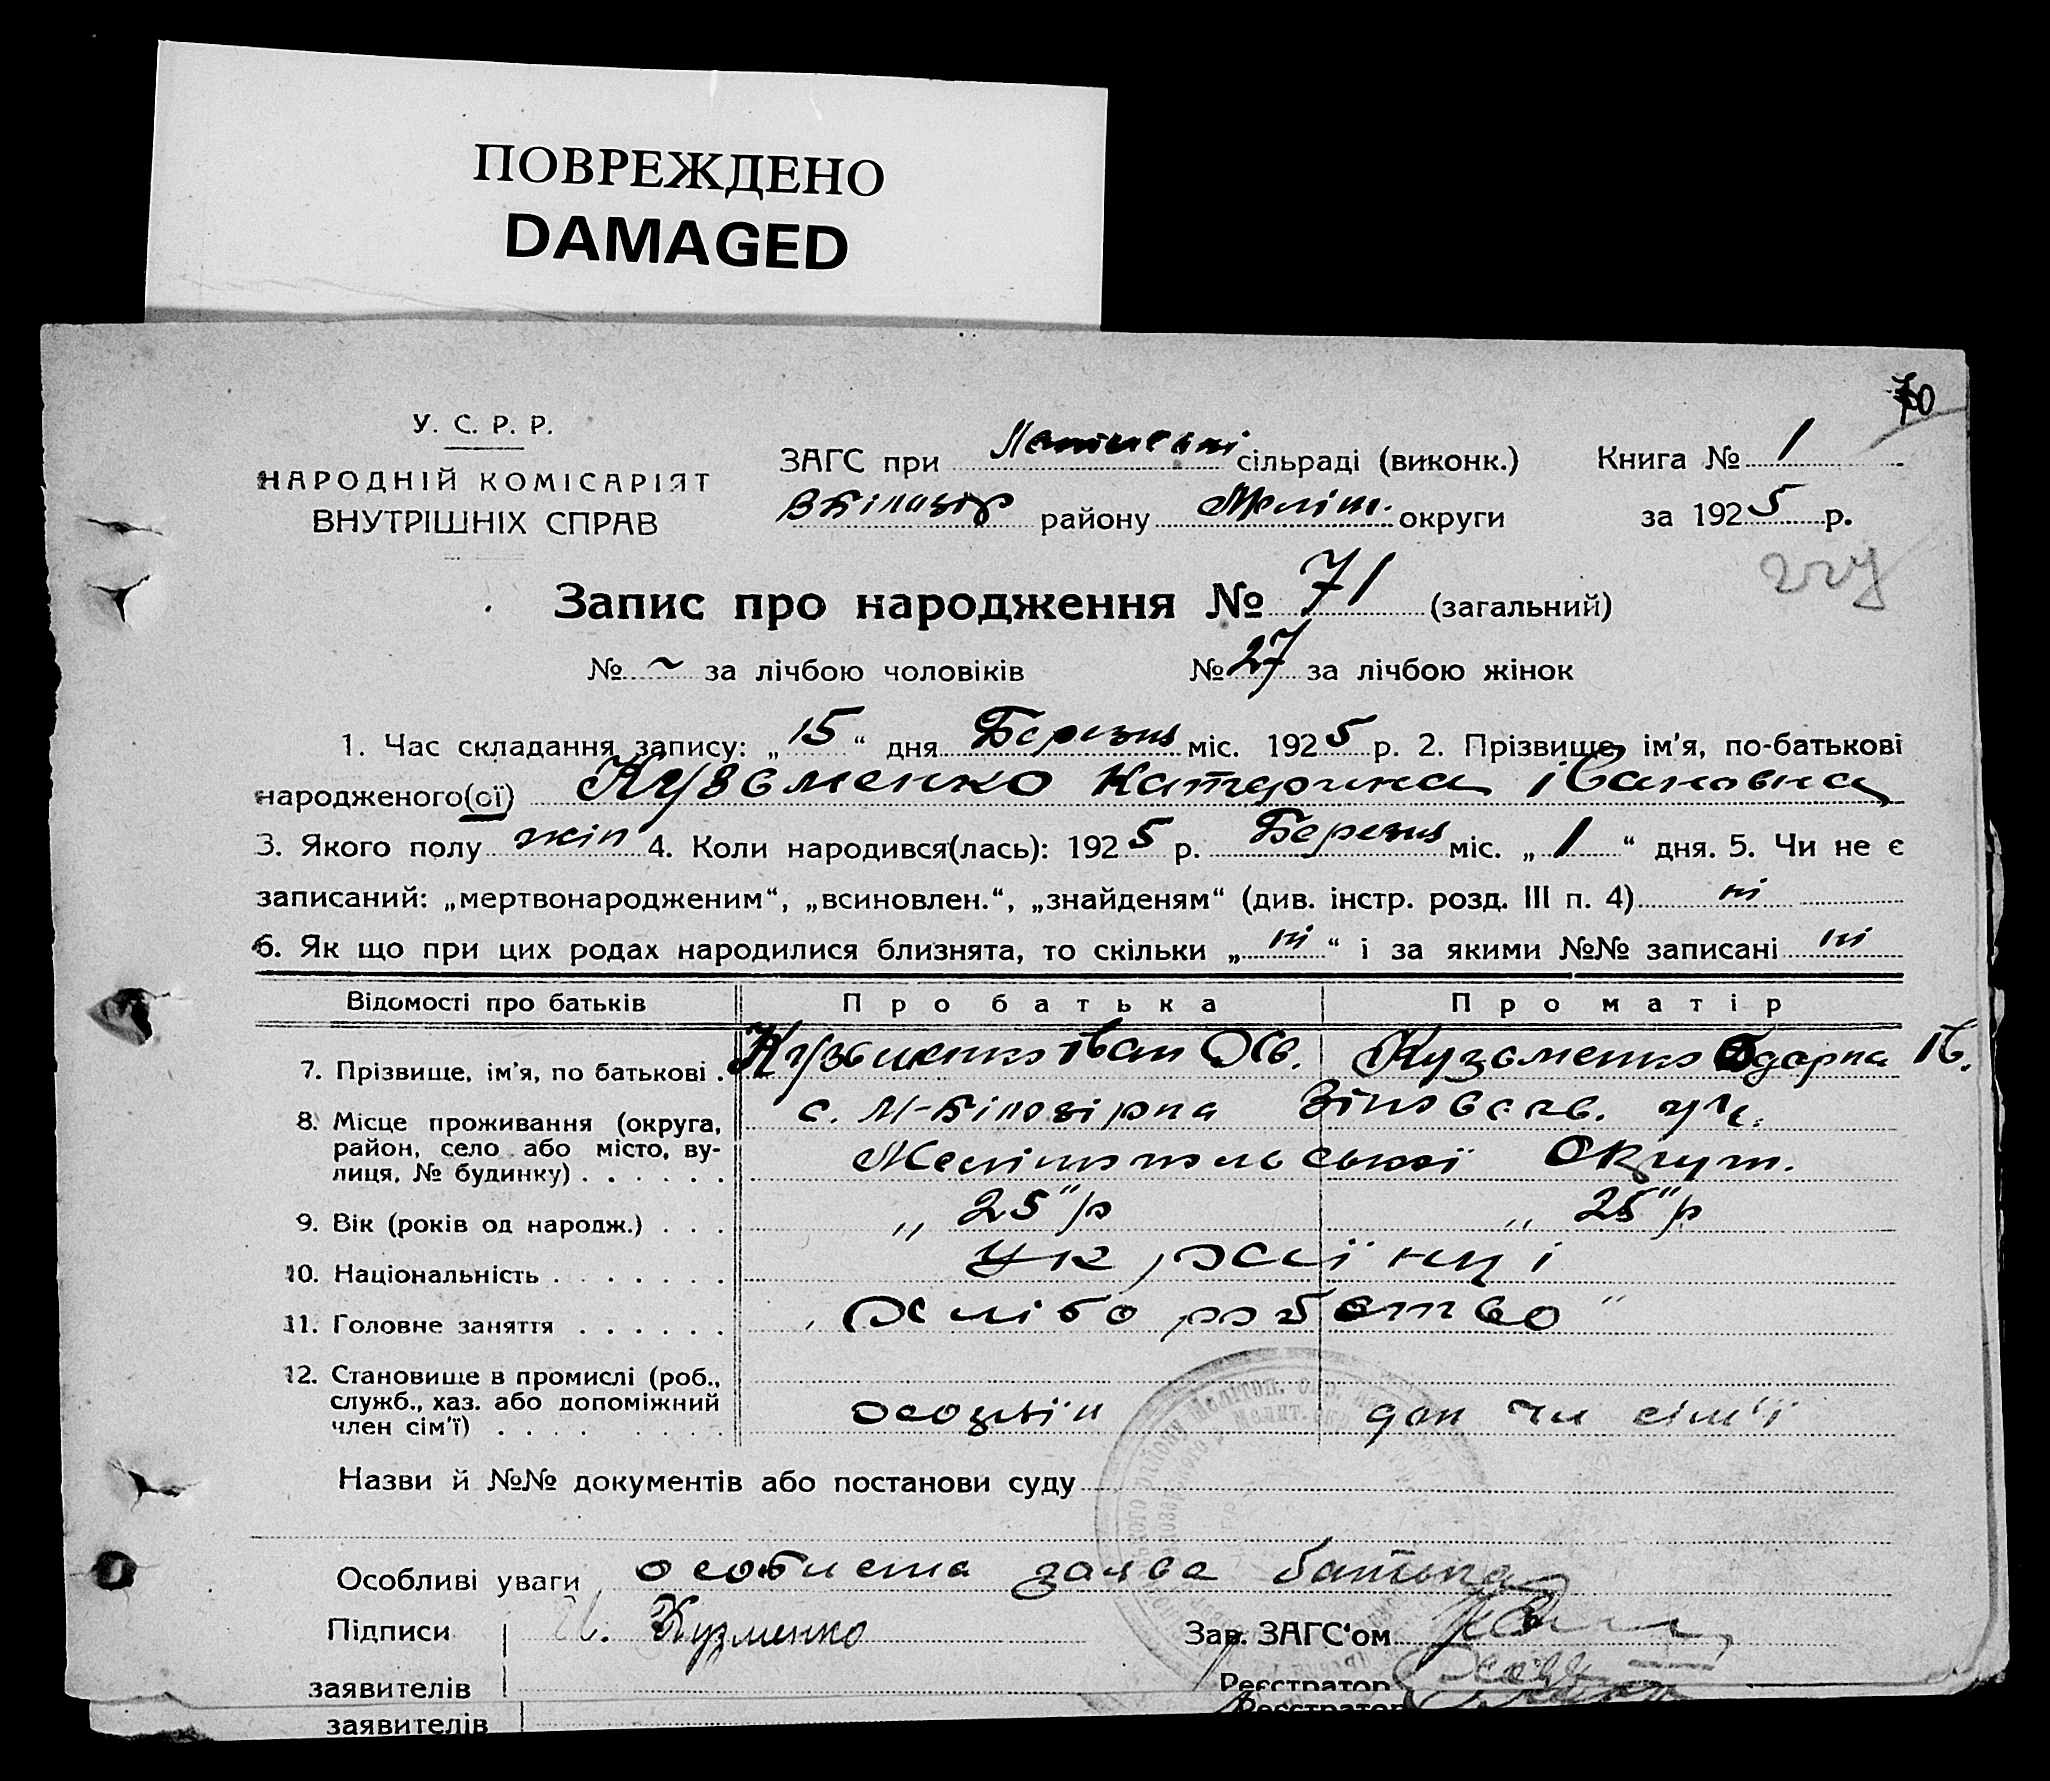 ПОВРЕЖДЕНО
DAMAGED
70
У. С. Р. Р.
НАРОДНІЙ КОМІСАРІЯТ
ВНУТРІШНІХ СПРАВ
ЗАГС при сільраді (виконк.) Книга № 1
ВБілозір району Меліт. округи за 1925 р.
Запис про народження № 71 (загальний)
№ ~ за лічбою чоловіків № 27 за лічбою жінок
1. Час складання запису: „15“ дня Березня міс. 1925 р. 2. Прізвище, ім'я, по-батькові
народженого(ої) Кузьменко Катерина Івановна
3. Якого полу жін 4. Коли народився(лась): 1925 р. Березня міс. „1“ дня. 5. Чи не є
записаний: „мертвонародженим“, „всиновлен.“, „знайденям“ (див. інстр. розд. III п. 4) ні
6. Як що при цих родах народилися близнята, то скільки „ні“ і за якими №№ записані ні
Відомості про батьків Про батька Про матір
7. Прізвище, ім'я, по батькові . Кузьменко Іван Кузьменко Одарка Ів.
8. Місце проживання (округа, с. М-Білозірка
район, село або місто, ву- Мелітопольської Округи.
лиця, № будинку) . . . . . .
9. Вік (років од народж.) . . . „25" р „25" р
10. Національність . . . . . . . Українці
11. Головне заняття . . . . . . Хліборобство "
12. Становище в промислі (роб.,
служб., хаз. або допоміжний
член сім'ї) . . . . . . . . доп чл сім'ї
Назви й №№ документів або постанови суду
Особливі уваги особиста заява батька
Підписи Кузменко Зав. ЗАГС'ом
заявителів Реєстратор
заявителів Реєстратор